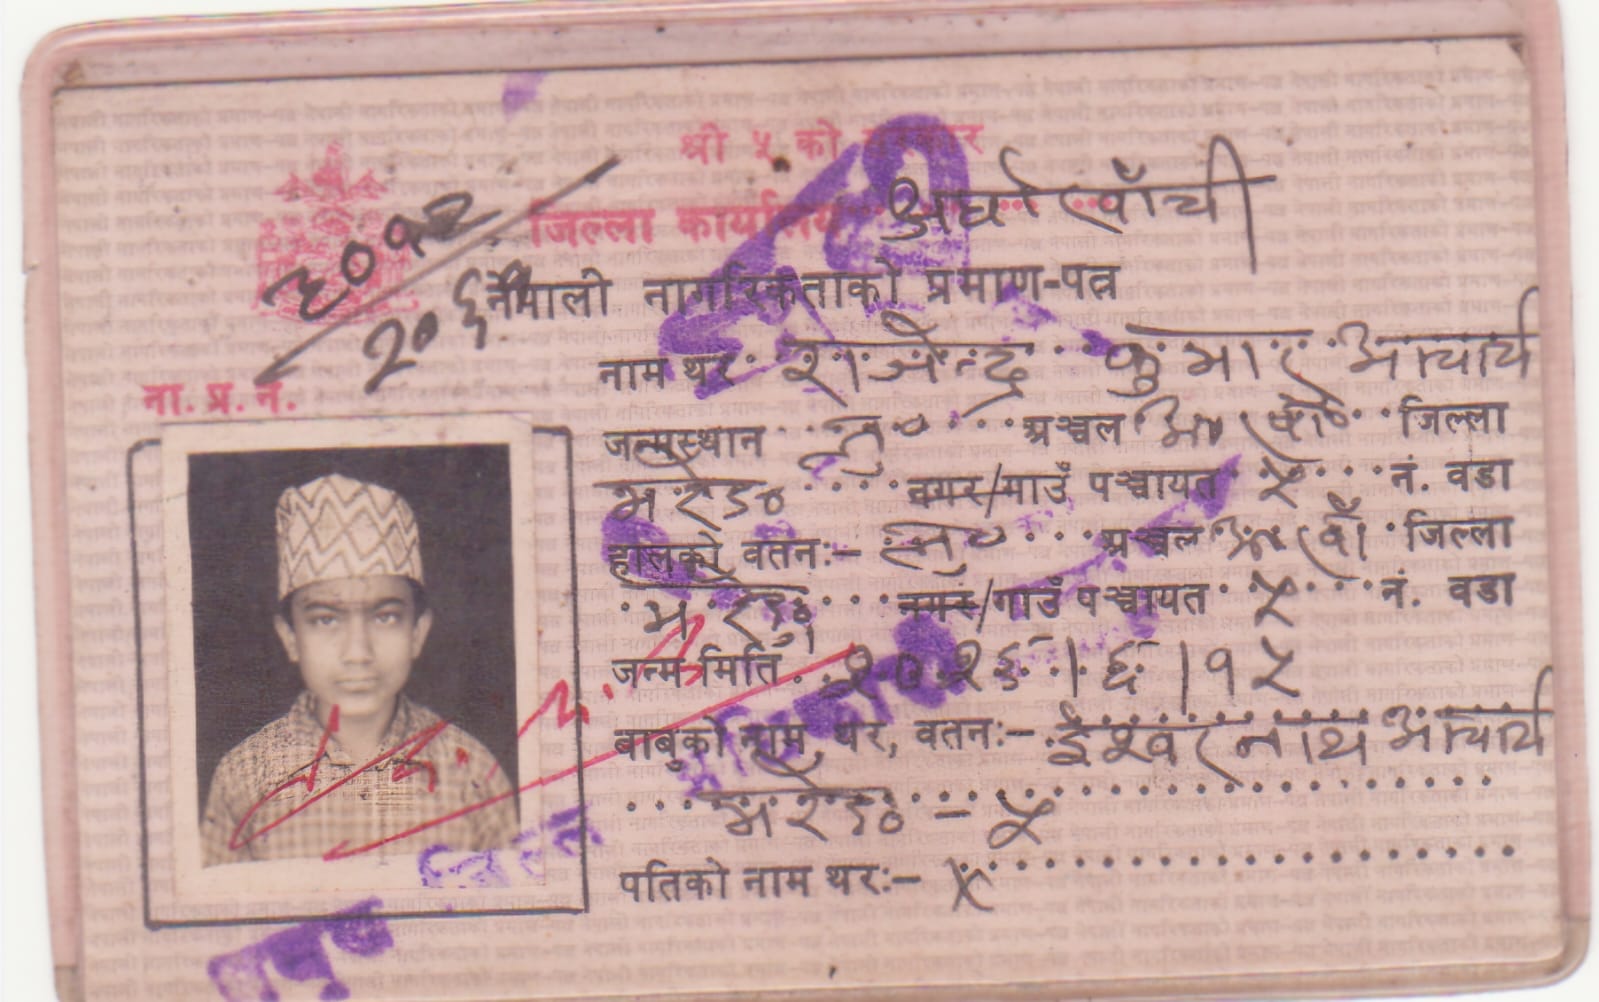 श्री ५ को सरकार
जिल्ला कार्यालय अर्घाखाँची
३०१२
नेपाली नागरिकताको प्रमाण-पत्र
ना. प्र. नं.
नाम थर राजेन्द्र कुमार आचार्य
जन्मस्थान लु० अञ्चल अर्खाँ० जिल्ला
नगर/गाउँ पञ्चायत ५ नं. वडा
हालको वतनः- लु० अञ्चल अर्खाँ जिल्ला
नगर/गाउँ पञ्चायत ५ नं. वडा
जन्म मिति २०२६।६।१५
बाबुको नाम, थर, वतनः- ईश्वर नाथ आचार्य
- ५
पतिको नाम थरः- ×